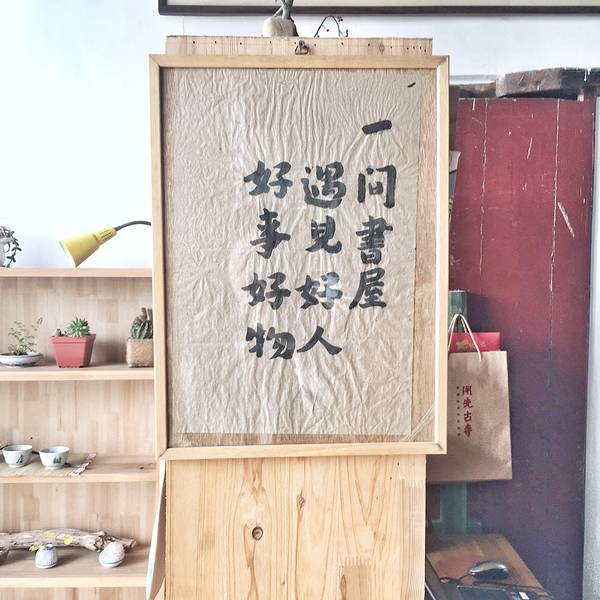 一问書屋
遇見好人
好事好物
開先古寺